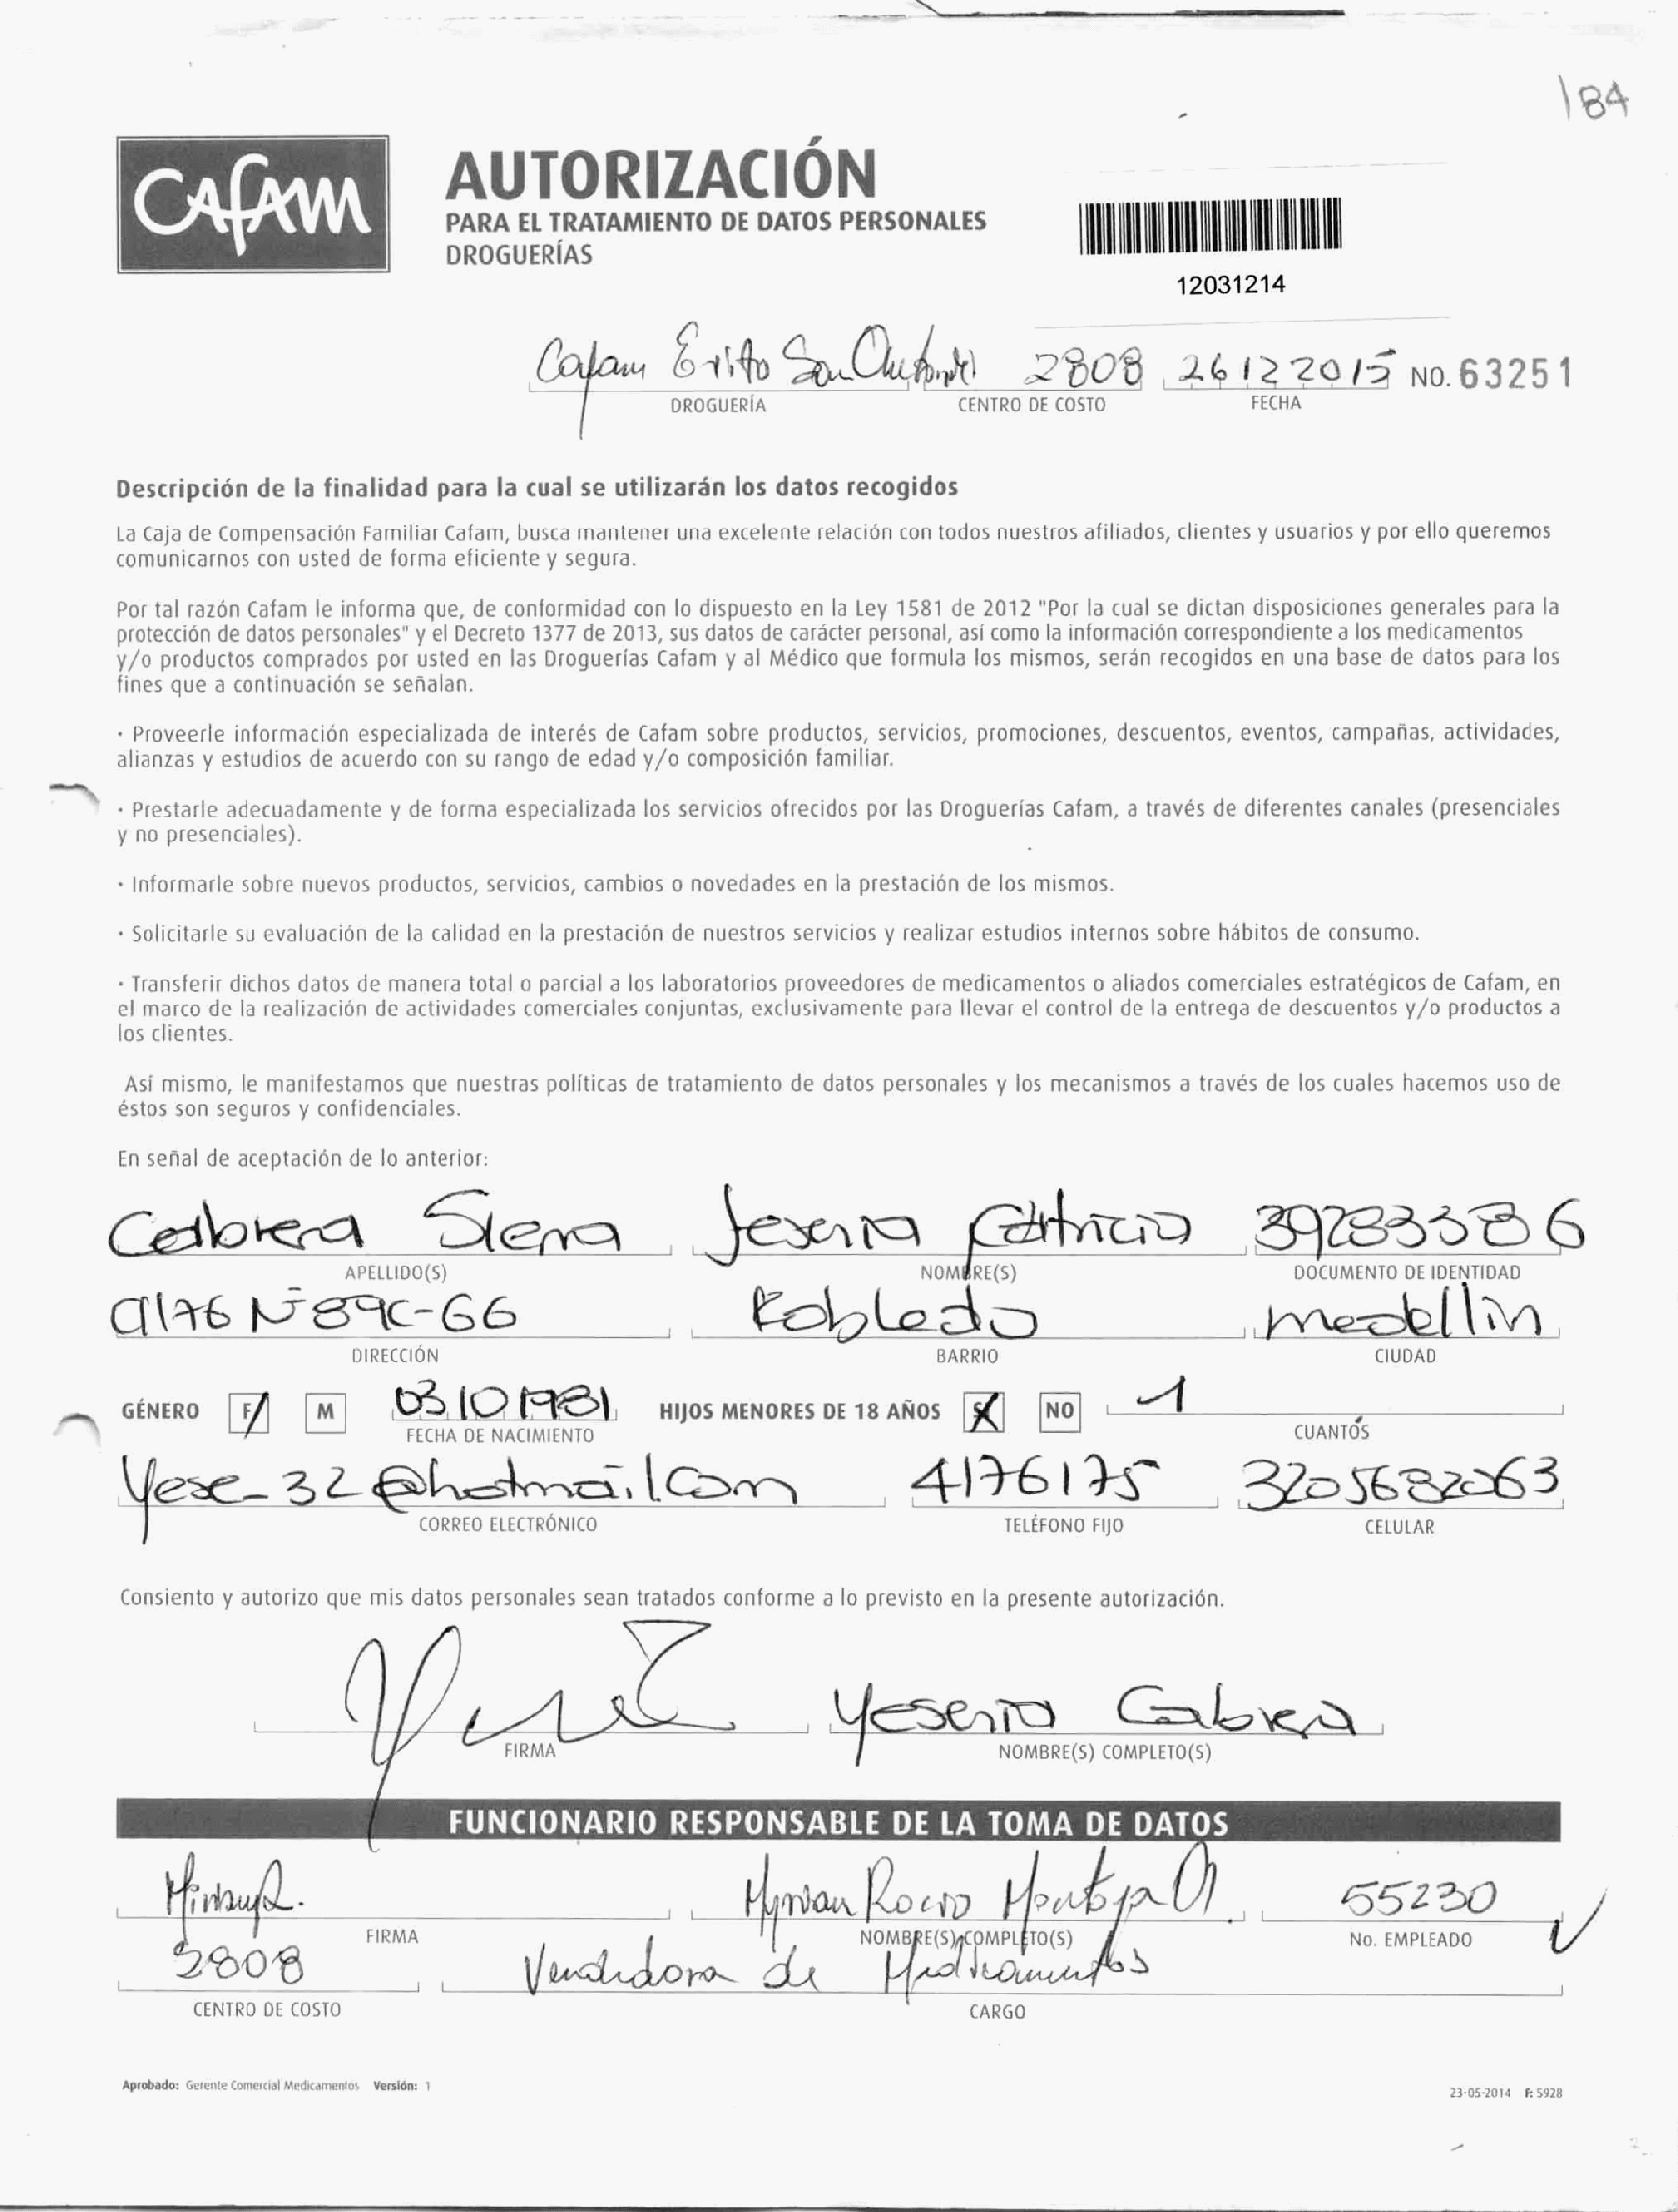 184
CAFAM
AUTORIZACIÓN
PARA EL TRATAMIENTO DE DATOS PERSONALES
DROGUERÍAS
12031214
Cafam Exito San Antonio 2808 26 12 2015 NO. 63251
DROGUERÍA CENTRO DE COSTO FECHA
Descripción de la finalidad para la cual se utilizarán los datos recogidos
La Caja de Compensación Familiar Cafam, busca mantener una excelente relación con todos nuestros afiliados, clientes y usuarios y por ello queremos
comunicarnos con usted de forma eficiente y segura.
Por tal razón Cafam le informa que, de conformidad con lo dispuesto en la Ley 1581 de 2012 "Por la cual se dictan disposiciones generales para la
protección de datos personales" y el Decreto 1377 de 2013, sus datos de carácter personal, así como la información correspondiente a los medicamentos
y/o productos comprados por usted en las Droguerías Cafam y al Médico que formula los mismos, serán recogidos en una base de datos para los
fines que a continuación se señalan.
· Proveerle información especializada de interés de Cafam sobre productos, servicios, promociones, descuentos, eventos, campañas, actividades,
alianzas y estudios de acuerdo con su rango de edad y/o composición familiar.
· Prestarle adecuadamente y de forma especializada los servicios ofrecidos por las Droguerías Cafam, a través de diferentes canales (presenciales
y no presenciales).
· Informarle sobre nuevos productos, servicios, cambios o novedades en la prestación de los mismos.
· Solicitarle su evaluación de la calidad en la prestación de nuestros servicios y realizar estudios internos sobre hábitos de consumo.
· Transferir dichos datos de manera total o parcial a los laboratorios proveedores de medicamentos o aliados comerciales estratégicos de Cafam, en
el marco de la realización de actividades comerciales conjuntas, exclusivamente para llevar el control de la entrega de descuentos y/o productos a
los clientes.
Así mismo, le manifestamos que nuestras políticas de tratamiento de datos personales y los mecanismos a través de los cuales hacemos uso de
éstos son seguros y confidenciales.
En señal de aceptación de lo anterior:
Cabrera Sierra Yesenia Patricia 39283386
APELLIDO(S) NOMBRE(S) DOCUMENTO DE IDENTIDAD
Cl 76 N° 89C-66 Robledo medellin
DIRECCIÓN BARRIO CIUDAD
GÉNERO F M 03 10 1981 HIJOS MENORES DE 18 AÑOS SI NO 1
FECHA DE NACIMIENTO CUANTOS
Yese_32@hotmail.com 4176175 3205682063
CORREO ELECTRÓNICO TELÉFONO FIJO CELULAR
Consiento y autorizo que mis datos personales sean tratados conforme a lo previsto en la presente autorización.
Yesenia Cabrera
FIRMA NOMBRE(S) COMPLETO(S)
FUNCIONARIO RESPONSABLE DE LA TOMA DE DATOS
Myrian Rocio Montoya 55230
FIRMA NOMBRE(S) COMPLETO(S) No. EMPLEADO
2808 Vendedora de Medicamentos
CENTRO DE COSTO CARGO
Aprobado: Gerente Comercial Medicamentos Versión: 1
23-05-2014 F: 5928